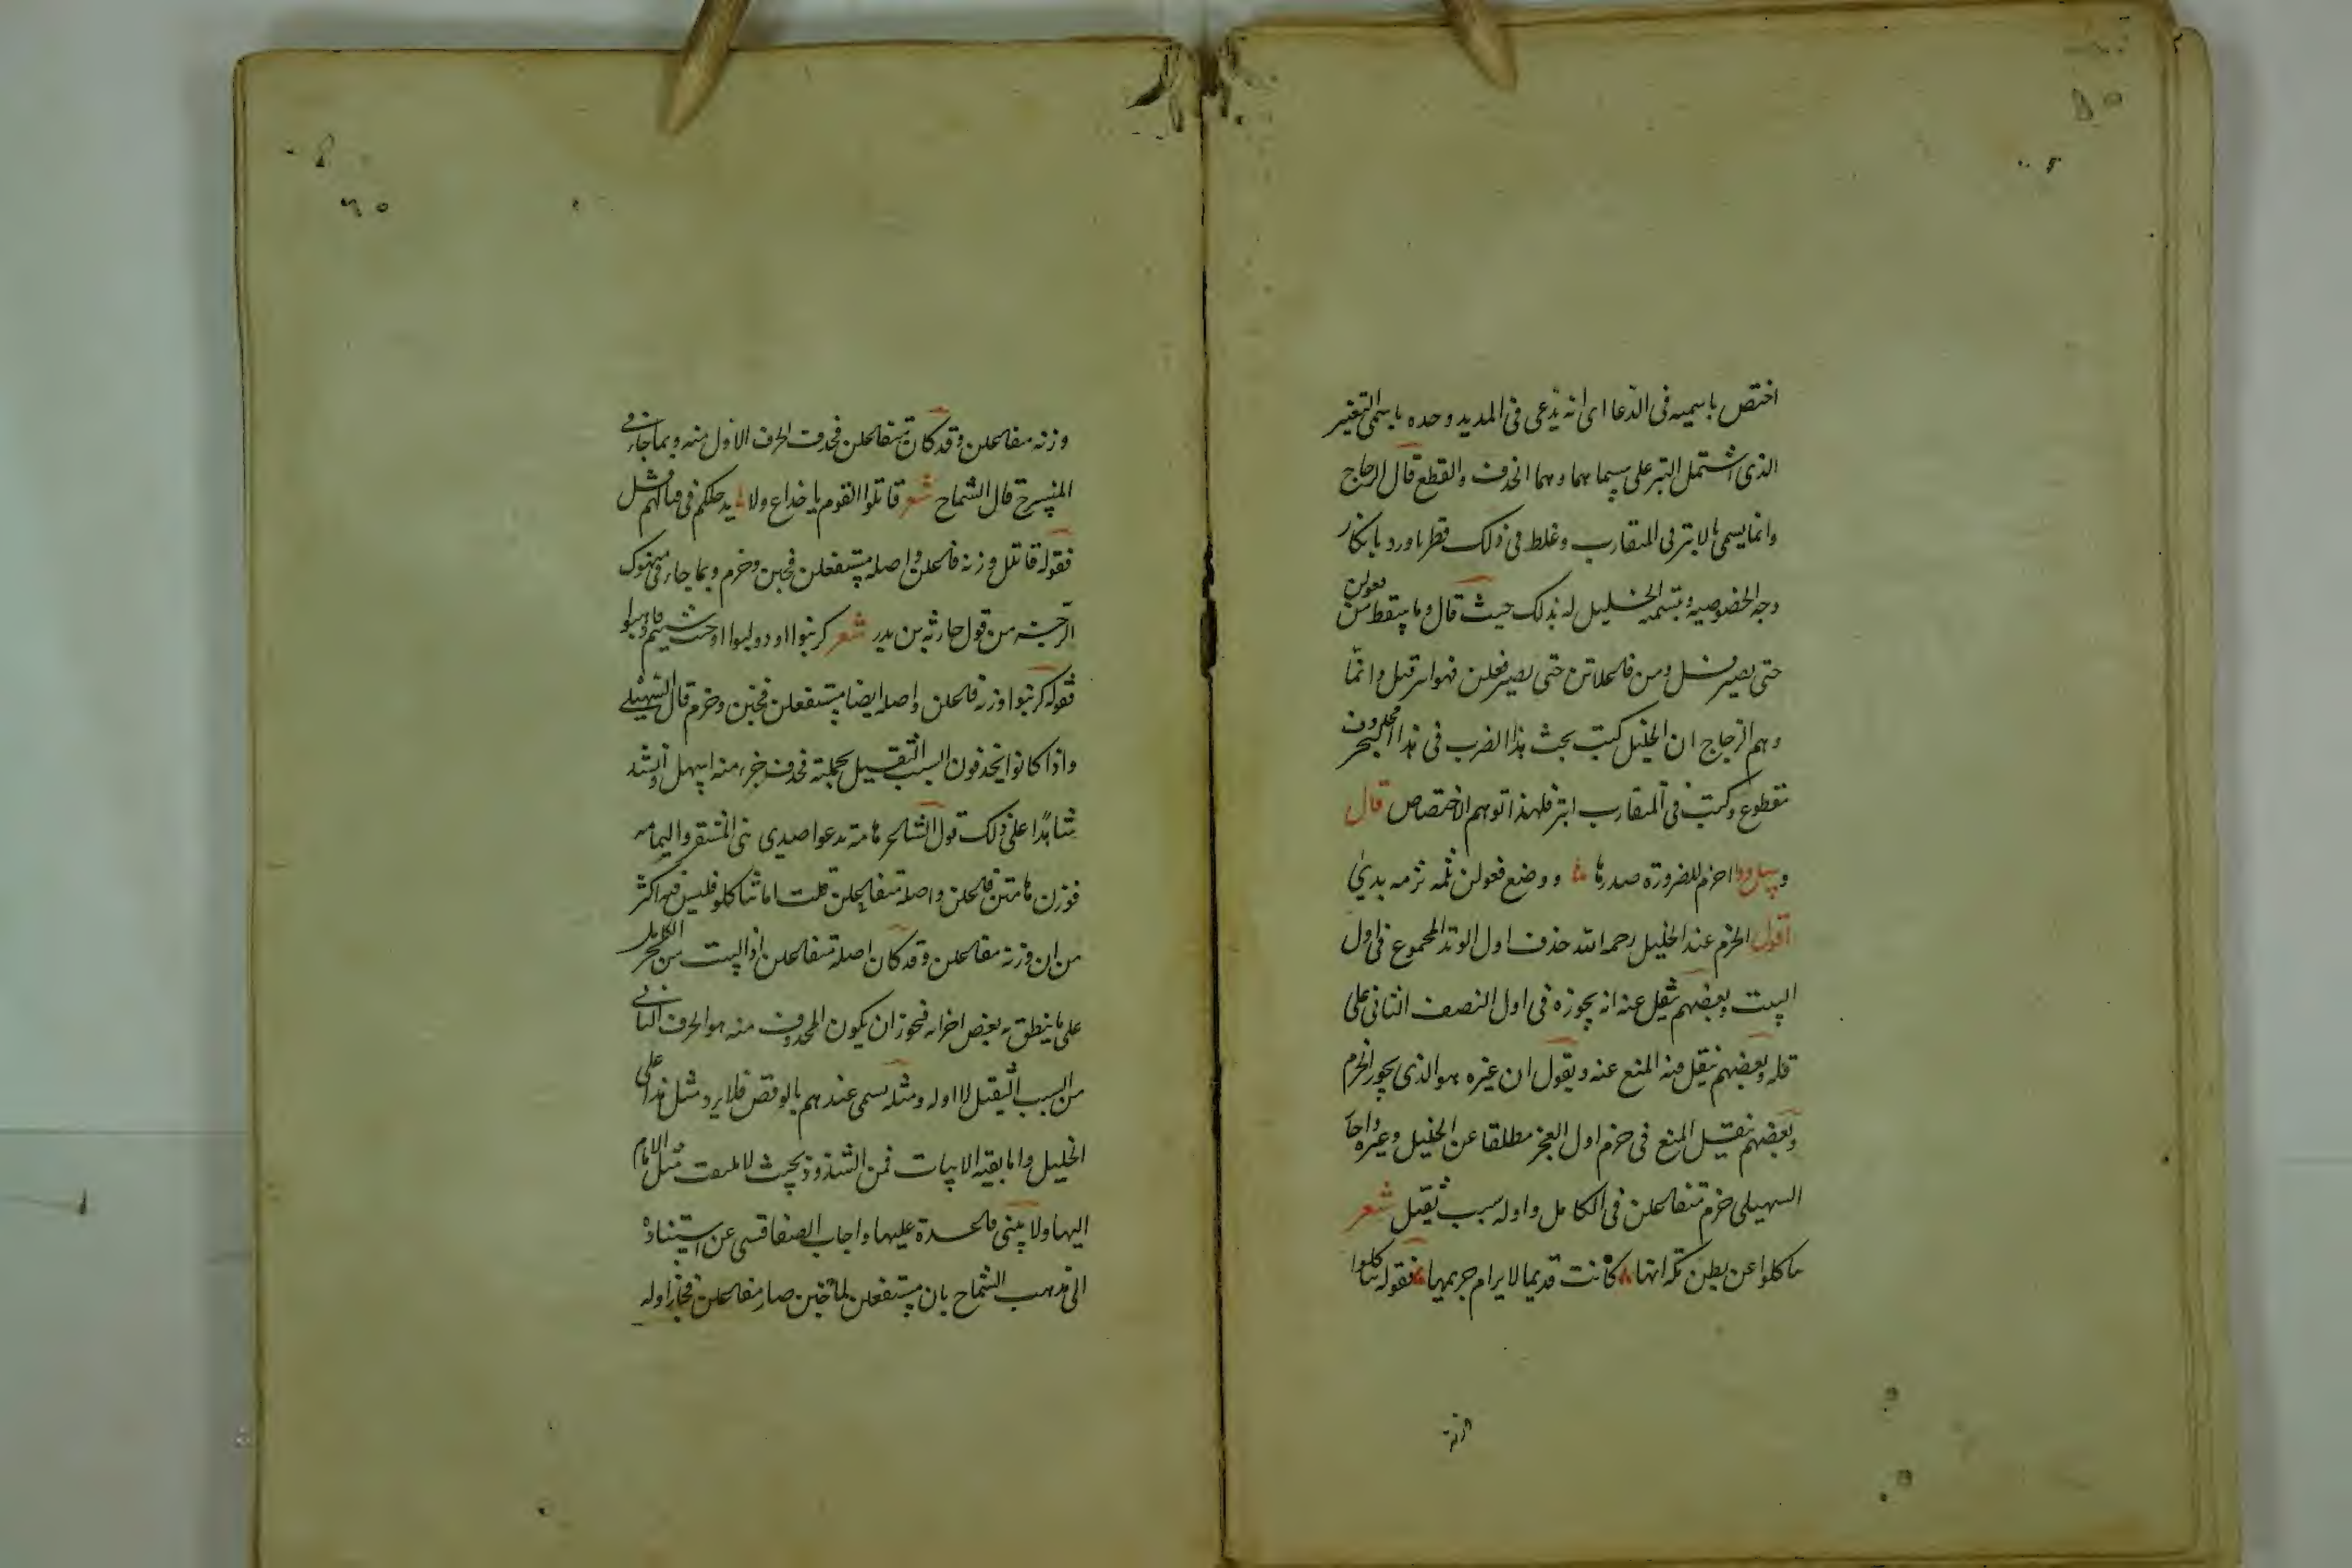 اختص باسميه فى الدعا اى انه يدعى فى المديد وحده باسمى التغير
الذى اشتمل البتر على سيماهما وهما الحذف والقطع قال الزجاج
وانما يسمى بالابتر فى المتقارب وغلط فى ذلك قطرب اورد بانكار
وجه الخصوصيه وبتسمية الخليل له بذلك حيث قال وما سقط من فعولن
حتى يصير فل ومن فاعلاتن حتى يصير فعلن فهو ابتر قيل وانما
وهم الزجاج ان الخليل كتب تحت هذا الضرب فى هذا البحر محذوف
مقطوع وكتب فى المتقارب ابتر فلهذا توهم الاختصاص قال
احزم للضرورة صدرها ووضع فعولن ثلمه ثرمه بدئ
اقول الخزم عند الخليل رحمه الله حذف اول الوتد المجموع فى اول
البيت وبعضهم نقل عنه انه يجوزه فى اول النصف الثانى على
قله وبعضهم ينقل منه المنع عنه ويقول ان غيره هو الذى يجوز الخرم
وبعضهم ينقل المنع فى خرم اول العجز مطلقا عن الخليل وغيره واجاز
السهيلى خرم متفاعلن فى الكامل واوله سبب ثقيل شعر
ساكلوا عن بطن مكة انها كانت قديما لا يرام حريمها فقوله تناكلوا
وزنه
وزنه مفاعلن وقد كان متفاعلن فحذف الحرف الاول منه وبما جاء فى
المنسرح قال الشماح شعر قاتلوا القوم يا خداع ولا يدخلكم فى قتالهم فشل
فقوله قاتل وزنه فاعلن واصله مستفعلن فخبن وخرم وبما جاء فى منهوك
الرجز من قول حارثه بن بدر شعر كرنبوا او دولبوا او حيث شيتم فاذهبوا
فقوله كرنبوا وزنه فاعلن واصله ايضا مستفعلن فخبن وخرم قال السهيلى
واذا كانوا يحذفون السبب الثقيل بجملته فحذف جزء منه اسهل وانشد
شاهدا على ذلك قول الشاعر هامة تدعوا صدى بين المشقر واليمامه
فوزن هامتن فاعلن واصله متفاعلن قلت اما تناكلوا فليس فيه اكثر
من ان وزنه مفاعلن وقد كان اصله متفاعلن اذ البيت من بحر الكامل
على ما ينطق به بعض اجزائه فيجوز ان يكون المحذوف منه هو الحرف الثانى
من السبب الثقيل لا اوله ومثله يسمى عندهم بالوقص فلا يرد مثل هذا على
الخليل واما بقية الابيات فمن الشذوذ بحيث لا يلتفت مثل الامام
اليها ولا يبنى قاعدة عليها واجاب الصفاقسى عن استشهاده
الى مذهب الشماح بان مستفعلن لما خبن صار مفاعلن فجاز اوله